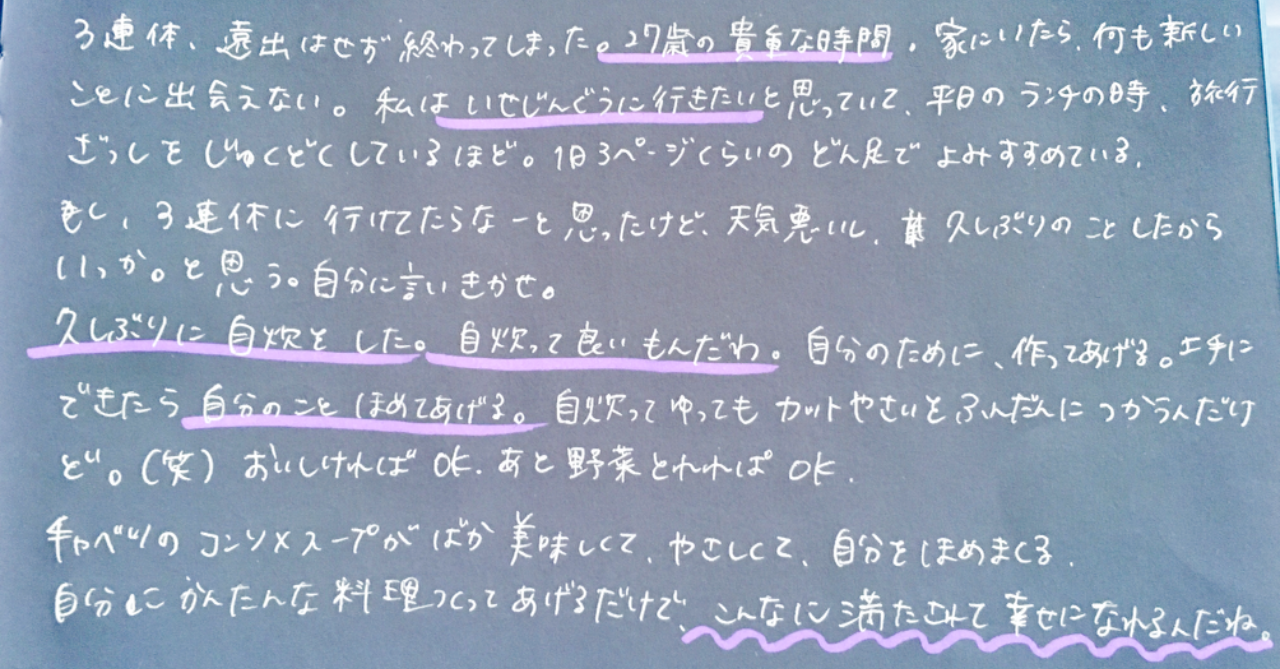 3連休、遠出はせず終わってしまった。27歳の貴重な時間。家にいたら、何も新しい
ことに出会えない。私はいせじんぐうに行きたいと思っていて、平日のランチの時、旅行
ざっしをじゅくどくしているほど。1日3ページくらいのどん足でよみすすめている。
もし、3連休に行けてたらなーと思ったけど、天気悪いし、久しぶりのことしたから
いっか。と思う。自分に言いきかせ。
久しぶりに自炊をした。自炊って良いもんだわ。自分のために、作ってあげる。上手に
できたら自分のことほめてあげる。自炊ってゆってもカットやさいをふんだんにつかうんだけ
ど。(笑)おいしければOK.あと野菜とれればOK.
キャベツのコンソメスープがばか美味しくて、やさしくて、自分をほめまくる.
自分にかんたんな料理つくってあげるだけで、こんなに満たされて幸せになれるんだね。